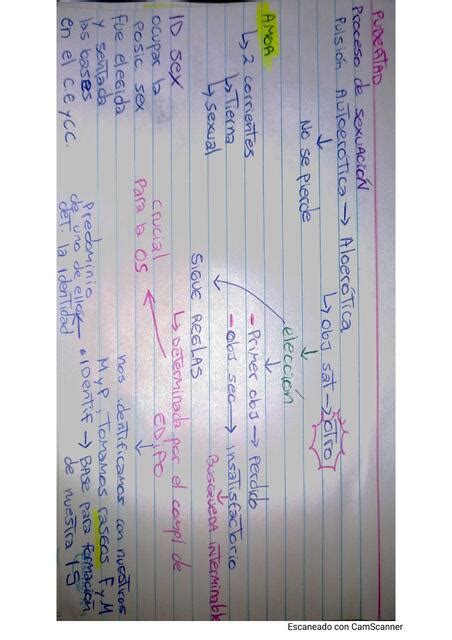 PUBERTAD
Proceso de sexuación
Pulsión Autoerótica → Aloerótica
↳ Obj sat → otro
No se pierde
elección
AMOR
↳ 2 corrientes
↳ Tierna
↳ sexual
- Primer obj → perdido
- Obj sec → insatisfactorio
BUSQUEDA interminable
SIGUE REGLAS
ID sex
↳ Determinada por el compl de EDIPO
ocupar la posic sex
fue elegida
y sentada
las bases
en el C.E y CC.
crucial
para la OS
nos identificamos con nuestros
M y P, tomamos rasgos F y M
• IDentif → BASE para formación
de nuestra
Predominio
de uno de ellos
det. la identidad
Escaneado con CamScanner